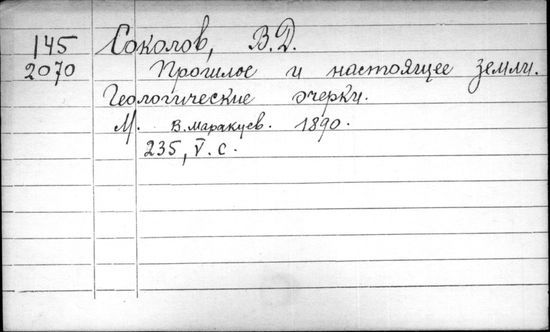 145 Соколов, В.Д.
2070 Прошлое и настоящее земли.
Геологические очерки.
М. В. Маракуев. 1890.
235, V. с.